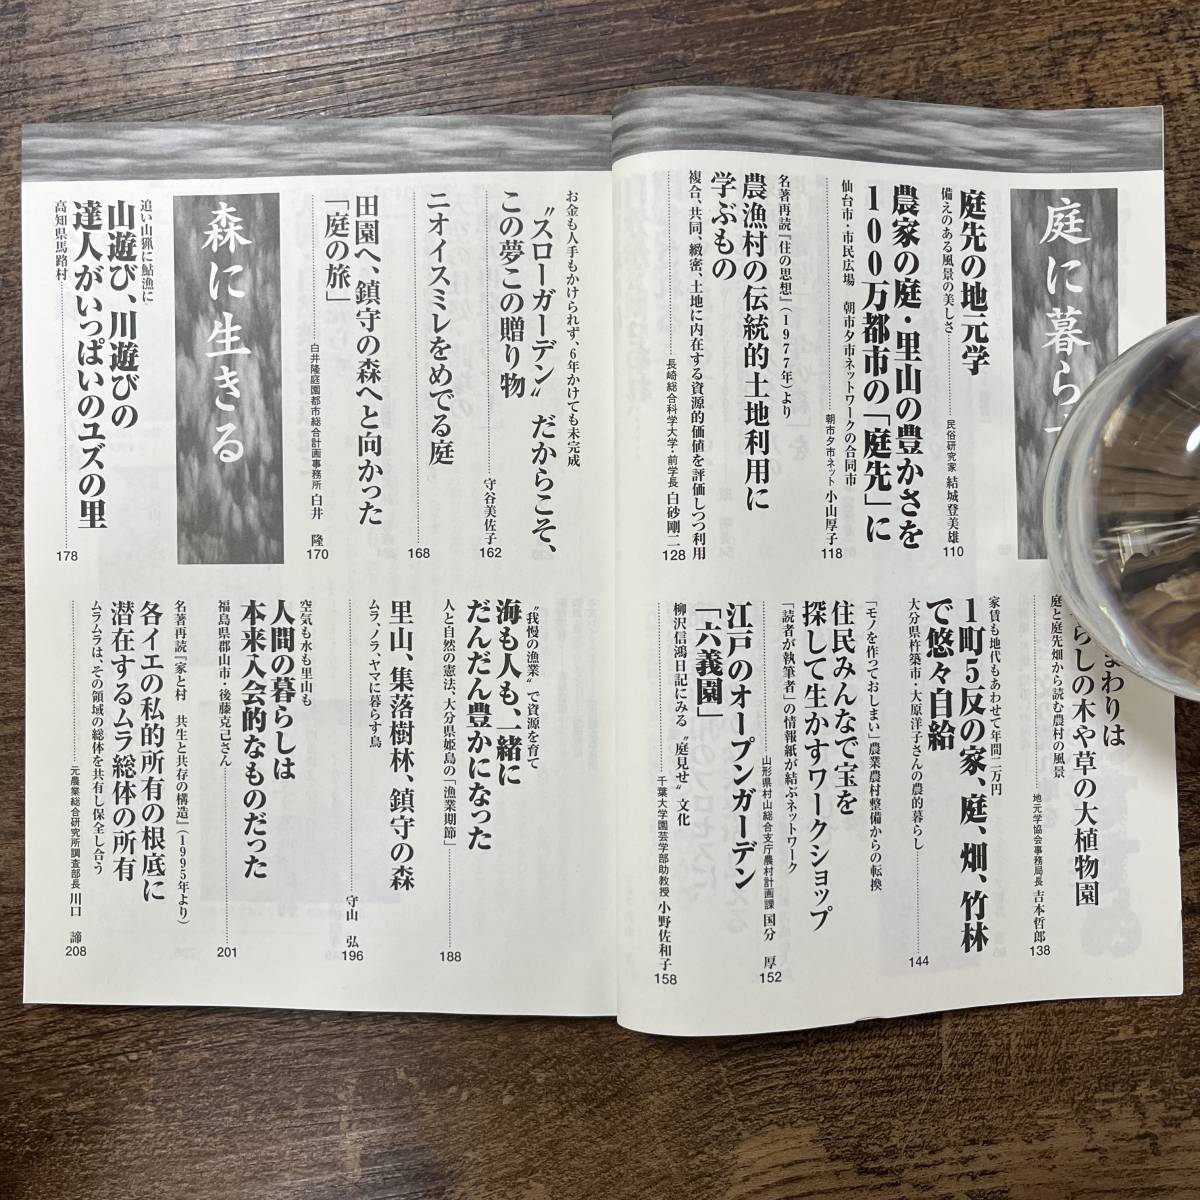 庭に暮ら
庭先の地元学
備えのある風景の美しさ
民俗研究家 結城登美雄
110
農家の庭・里山の豊かさを
100万都市の「庭先」に
仙台市・市民広場 朝市夕市ネットワークの合同市
朝市夕市ネット 小山厚子
118
名著再読『住の思想』(1977年)より
農漁村の伝統的土地利用に
学ぶもの
複合、共同、緻密、土地に内在する資源的価値を評価しつつ利用
長崎総合科学大学・前学長 白砂剛二
128
まわりは
らしの木や草の大植物園
庭と庭先畑から読む農村の風景
地元学協会事務局長 吉本哲郎
138
家賃も地代もあわせて年間二万円
1町5反の家、庭、畑、竹林
で悠々自給
大分県杵築市・大原洋子さんの農的暮らし
144
「モノを作っておしまい」農業農村整備からの転換
住民みんなで宝を
探して生かすワークショップ
「読者が執筆者」の情報紙が結ぶネットワーク
山形県村山総合支庁農村計画課 国分 厚
152
江戸のオープンガーデン
「六義園」
柳沢信鴻日記にみる〝庭見せ〟文化
千葉大学園芸学部助教授 小野佐和子
158
お金も人手もかけられず、6年かけても未完成
〝スローガーデン〟だからこそ、
この夢この贈り物
守谷美佐子
162
ニオイスミレをめでる庭
168
田園へ、鎮守の森へと向かった
「庭の旅」
白井隆庭園都市総合計画事務所 白井 隆
170
森に生きる
追い山猟に鮎漁に
山遊び、川遊びの
達人がいっぱいのユズの里
高知県馬路村
178
〝我慢の漁業〟で資源を育て
海も人も、一緒に
だんだん豊かになった
人と自然の憲法、大分県姫島の「漁業期節」
188
里山、集落樹林、鎮守の森
ムラ、ノラ、ヤマに暮らす鳥
守山 弘
196
空気も水も里山も
人間の暮らしは
本来入会的なものだった
福島県郡山市・後藤克己さん
201
名著再読『家と村 共生と共存の構造』(1995年より)
各イエの私的所有の根底に
潜在するムラ総体の所有
ムラムラは、その領域の総体を共有し保全し合う
元農業総合研究所調査部長 川口 諦
208